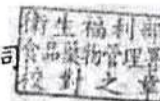 衛生福利部
食品藥物管理署
校對之章
司